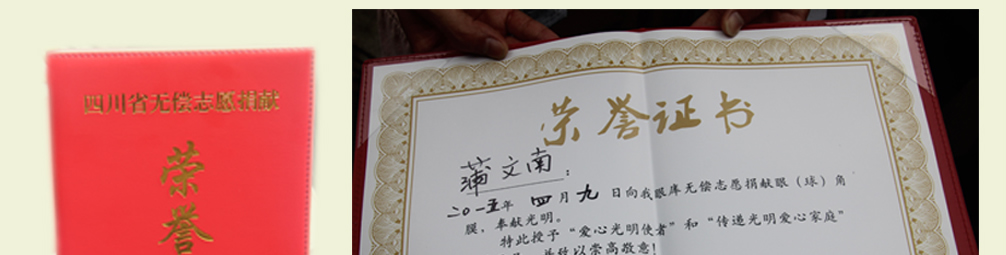 四川省无偿志愿捐献
荣
誉
荣誉证书
蒲文南：
二〇一五年 四月九日向我眼库无偿志愿捐献眼（球）角
膜，奉献光明。
特此授予“爱心光明使者”和“传递光明爱心家庭”
并致以崇高敬意！